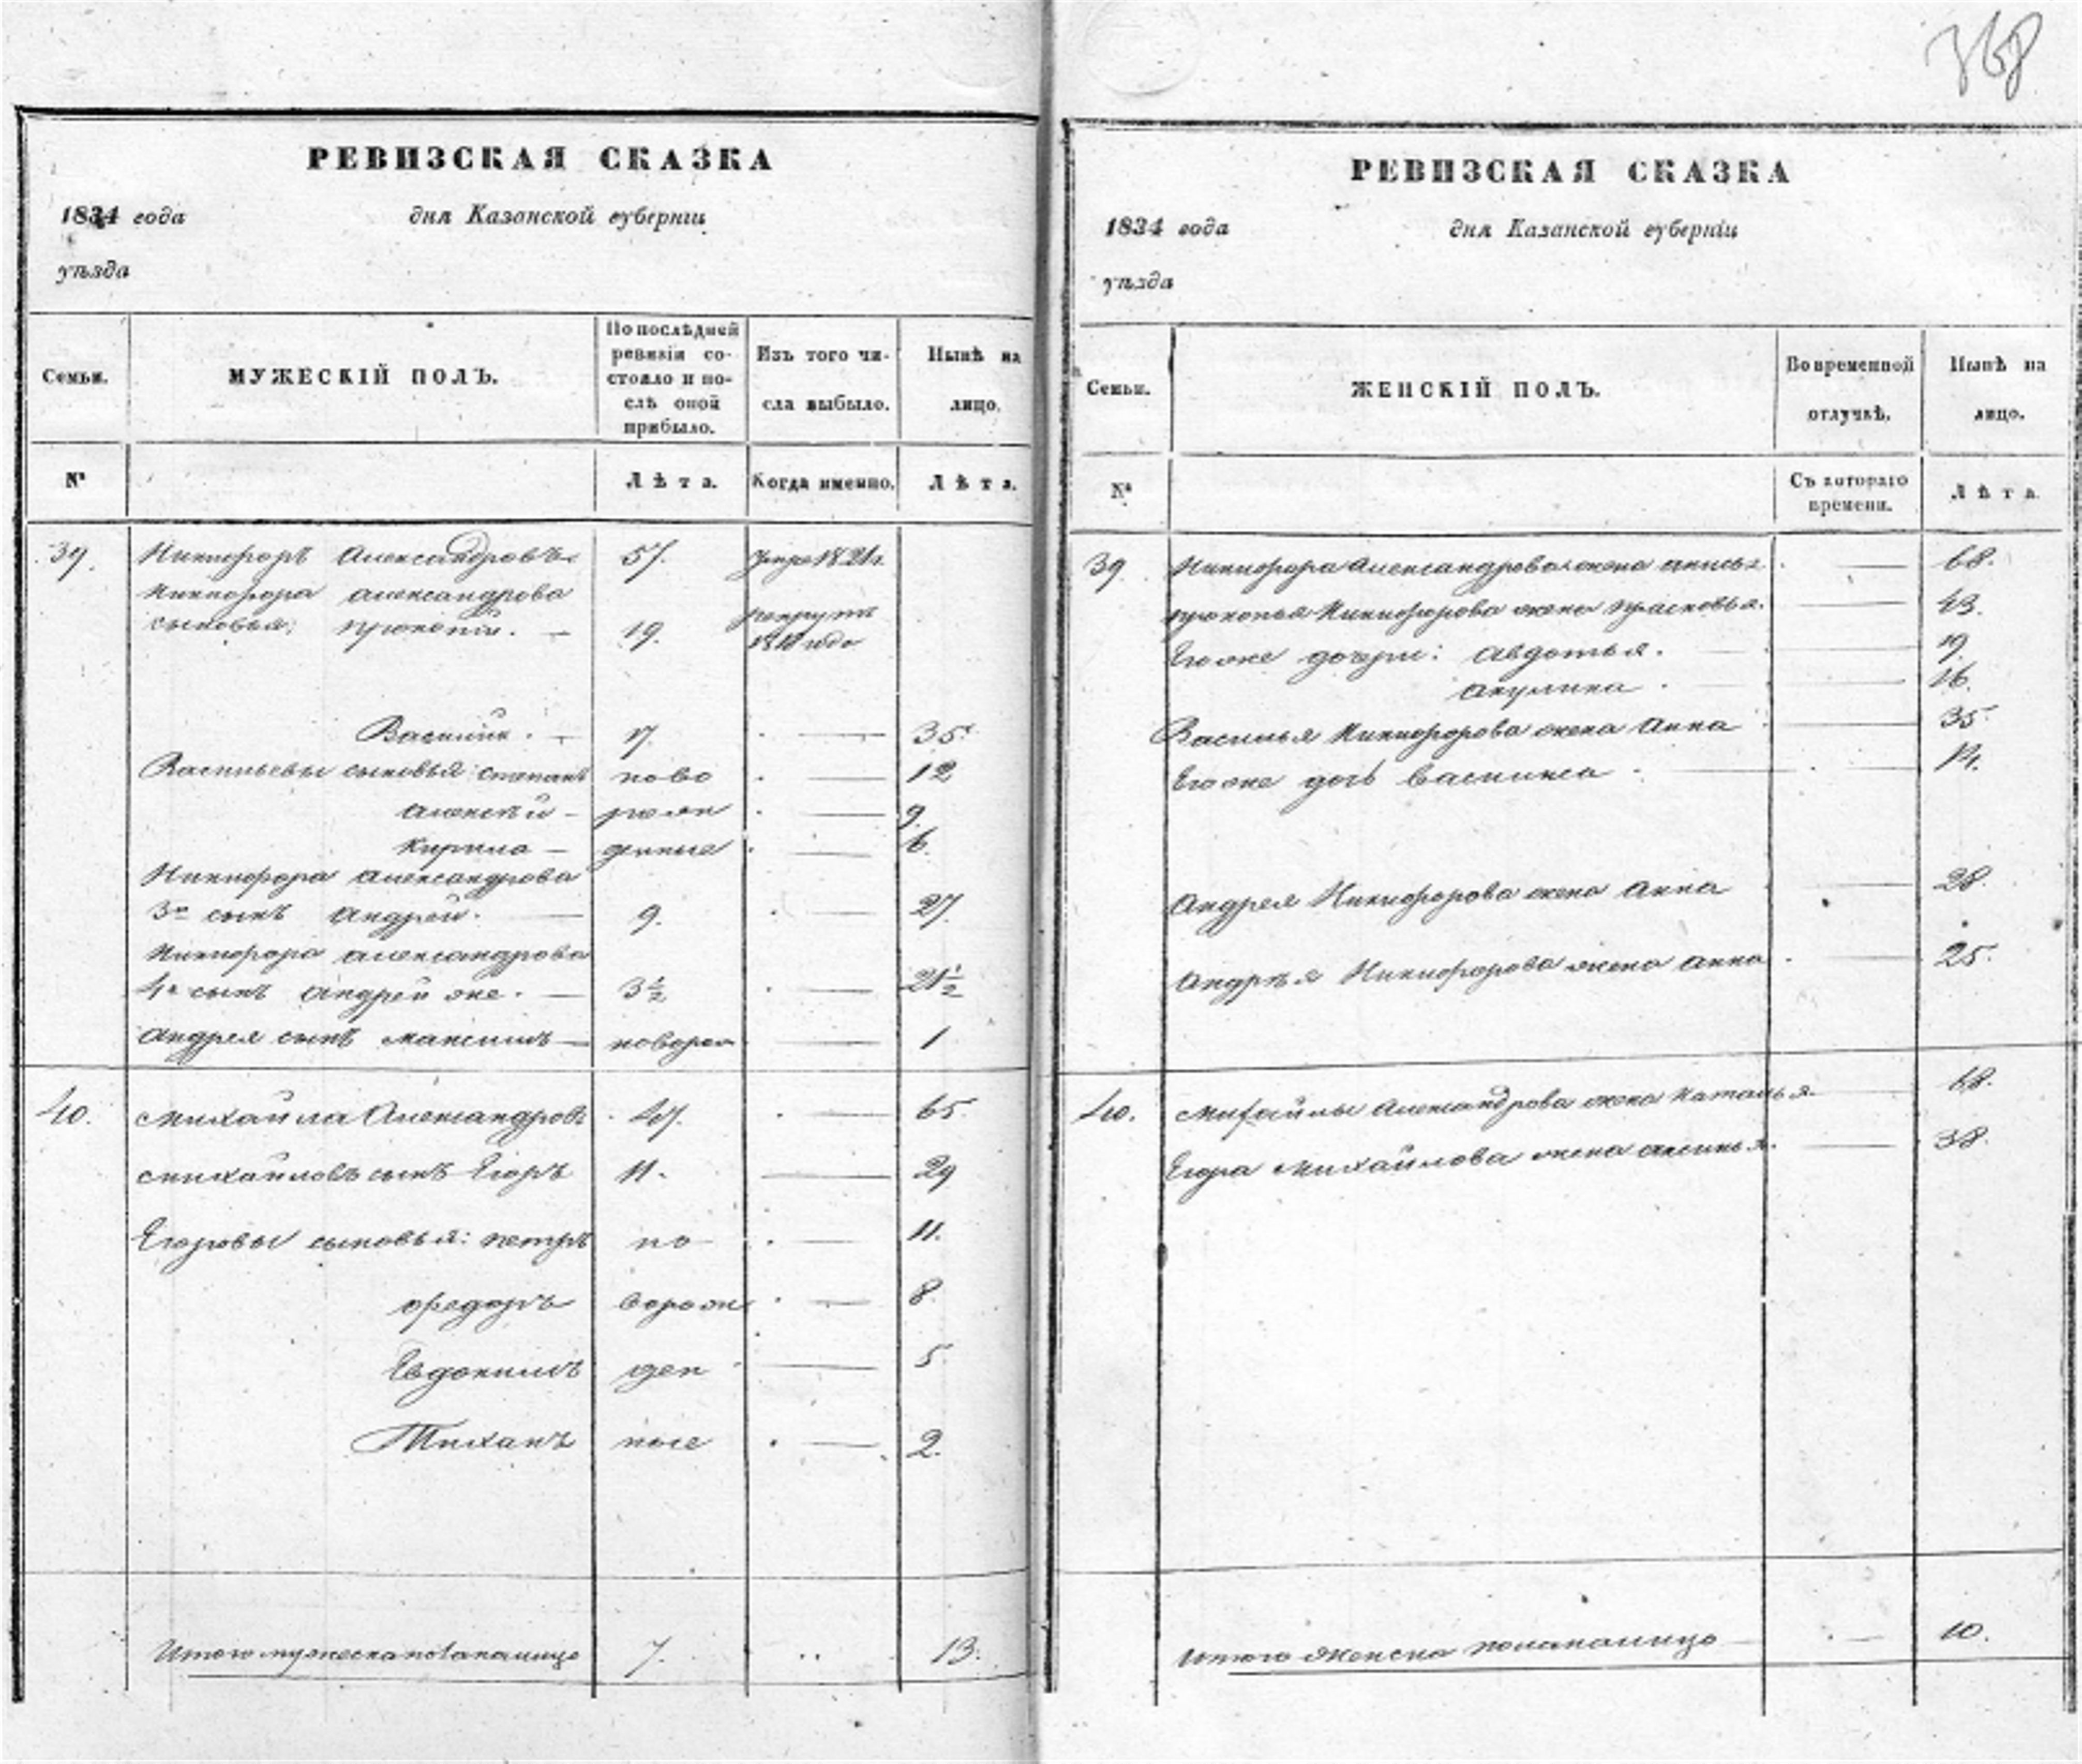 368
РЕВИЗСКАЯ СКАЗКА
1834 года дня Казанской губерніи
уѣзда
Семьи.
МУЖЕСКІЙ ПОЛЪ.
По послѣдней ревизіи со-
стояло и по-
слѣ оной
прибыло.
Изъ того чи-
сла выбыло.
Нынѣ на
лицо.
№ Лѣта. Когда именно. Лѣта.
39. Никифоръ Александровъ 57. умре 1821г.
Никифора Александрова
сыновья: Прокопій. — 19. рекрутъ
1818 годо
Василій. — 17. — 35.
Васильевы сыновья: Степанъ ново — 12
Алексѣй — рож — 9.
Кирила — денные — 6.
Никифора Александрова
3й сынъ Андрей. — 9. — 27.
Никифора Александрова
4й сынъ Андрей же. — 3½ — 21½
Андрея сынъ Максимъ — новорож — 1
40. Михайла Александровъ 47. — 65.
Михайловъ сынъ Егоръ 11. — 29
Егоровы сыновья: Петръ но — 11.
Федоръ ворож — 8.
Евдокимъ ден — 5.
Тиханъ ные — 2.
Итого мужеска пола налицо 7. 13.
РЕВИЗСКАЯ СКАЗКА
1834 года дня Казанской губерніи
уѣзда
Семьи.
ЖЕНСКІЙ ПОЛЪ.
Во временной
отлучкѣ.
Нынѣ на
лицо.
№ Съ котораго
времени.
Лѣта.
39. Никифора Александрова жена Анисья — 68.
Прокопья Никифорова жена Прасковья. — 43.
Его же дочери: Авдотья. — 19.
Акулина. — 16.
Василья Никифорова жена Анна — 35.
Его же дочь Василиса — 14.
Андрея Никифорова жена Анна — 28.
Андрѣя Никифорова жена Анна — 25.
40. Михайлы Александрова жена Наталья — 68.
Егора Михайлова жена Аксинья. — 38.
Итого женска пола налицо — 10.